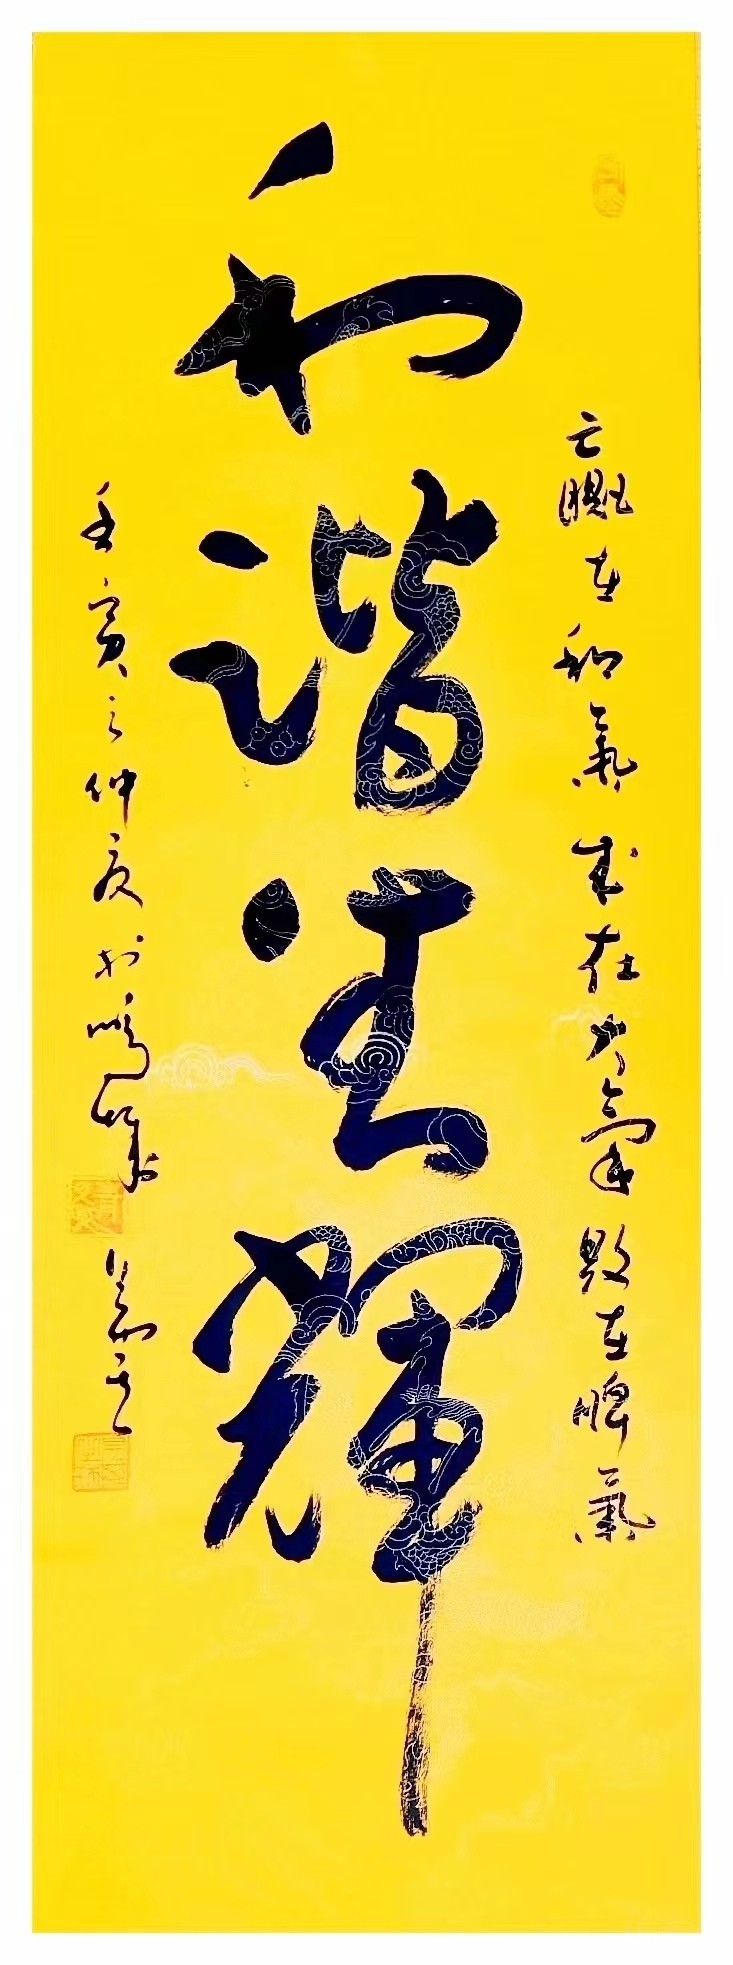 赢在和气成在大气败在脾气
和谐生辉
壬寅之仲夏于鸣